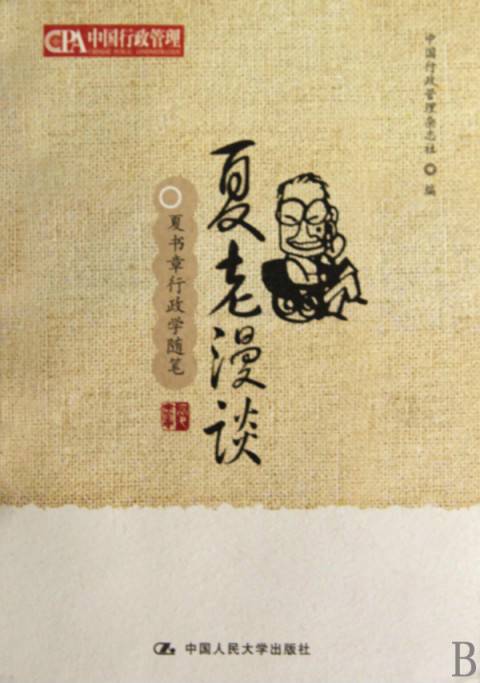 CPA中国行政管理
中国行政管理杂志社 编
夏老漫谈
夏书章行政学随笔
中国人民大学出版社
B